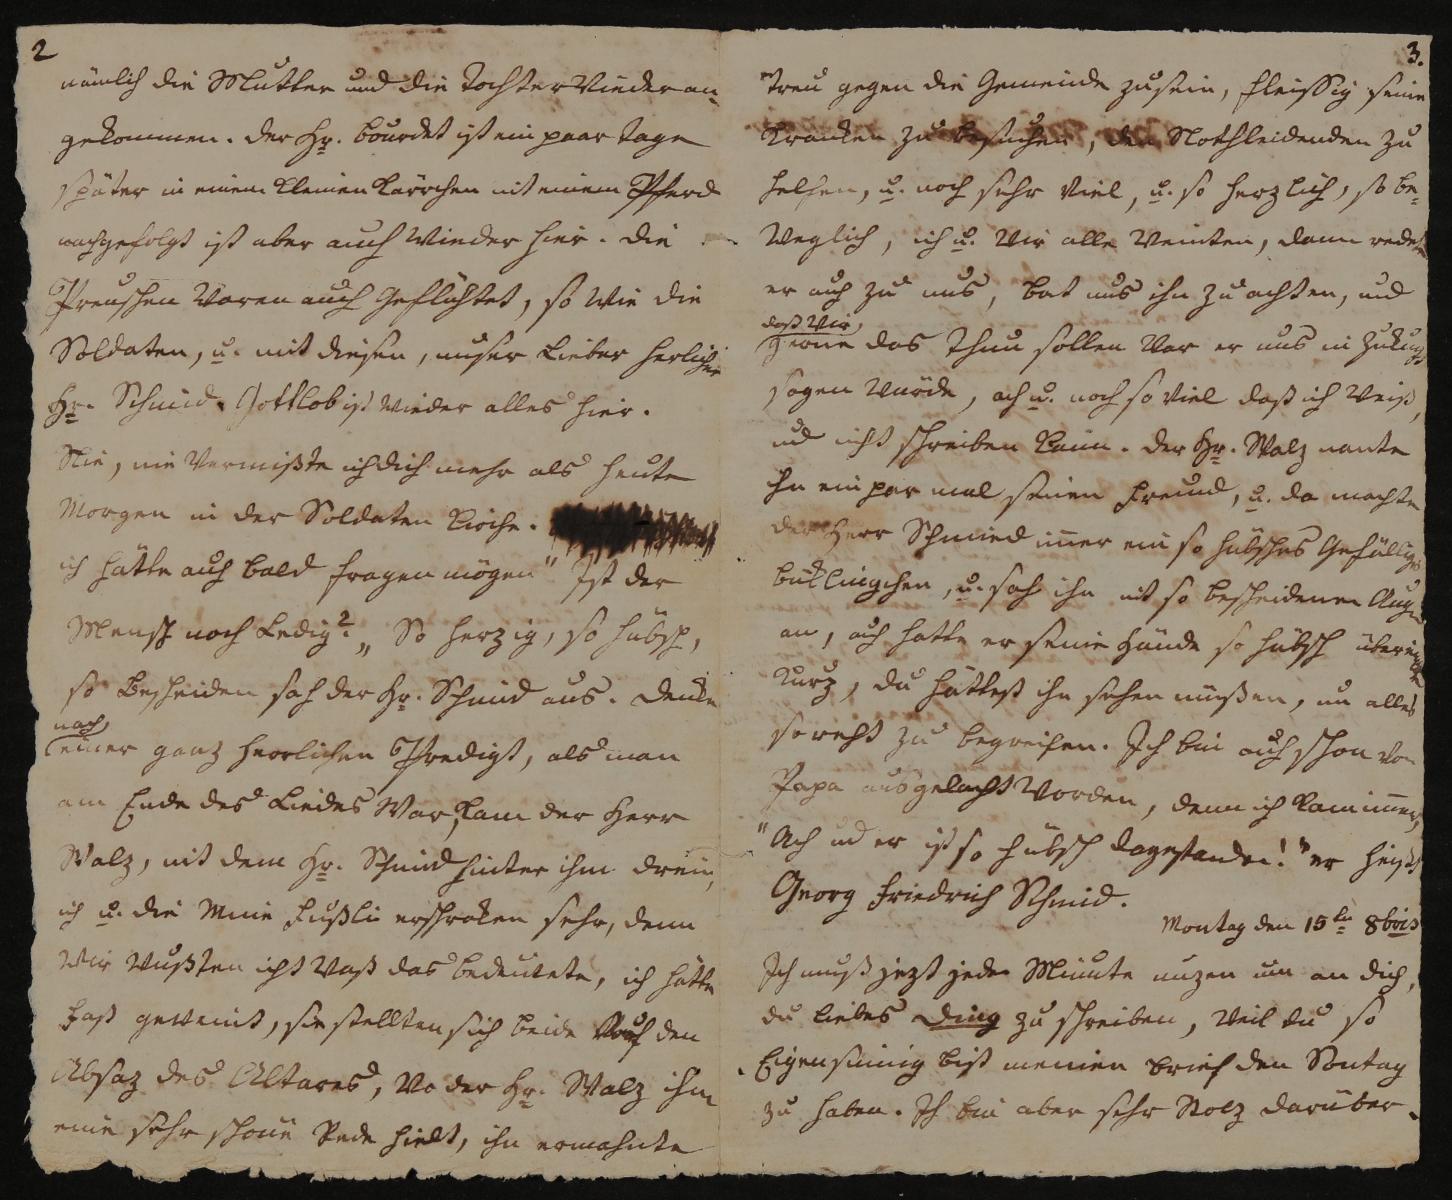 2
nämlich die Mutter und die Tochter wieder an-
gekommen. der Hr. bourdet ist ein paar tage
später in einem kleinen kärrchen mit einem Pferd
nachgefolgt ist aber auch wieder hier. die
Preuschen waren auch geflüchtet, so wie die
Soldaten, u. mit diesen, unser lieber herlicher
Hr. Schmid. Gottlob ist wieder alles hier.
Nie, nie vermißte ich dich mehr als heute
Morgen in der Soldaten Kirche.
ich hätte auch bald fragen mögen" Ist der
Mensch noch Ledig?„ So herzig, so hübsch,
so bescheiden sah der Hr. Schmid aus. denke
nach
einer ganz herrlichen Predigt, als man
am Ende des Liedes war, kam der Herr
Walz, mit dem Hr. Schmid hinter ihm drein,
ich u. die Mine Fußli erschraken sehr, denn
wir wußten nicht waß das bedeutete, ich hätte
fast geweint, sie stellten sich beide auf den
Absaz des Altares, wo der Hr. Walz ihm
eine sehr schöne Rede hielt, ihn ermahnte
3.
treu gegen die Gemeinde zu sein, fleissig seine
Kranken zu besuchen, den Nothleidenden zu
helfen, u. noch sehr viel, u. so herzlich, so be-
weglich, ich u. wir alle weinten, dann redete
er auch zu uns, bat uns ihn zu achten, und
daß wir
gerne das thun sollen war er uns in Zukunft
sagen würde, ach u. noch so viel daß ich weiß,
und nicht schreiben kann. der Hr. Walz nante
ihn ein par mal seinen Freund, u. da machte
der Herr Schmied immer ein so hübsches gefälliges
büklingchen, u. sah ihn mit so bescheidenen Augen
an, auch hatte er seine Hände so hübsch
kurz, du hättest ihn sehen müßen, um alles
so recht zu begreifen. Ich bin auch schon von
Papa ausgelacht worden, denn ich kam immer,
"Ach und er ist so hübsch dagestanden!" er heißt
Georg Friedrich Schmid.
Montag den 15tn 8bris
Ich muß jezt jede Minute nuzen um an dich,
du liebes Ding zu schreiben, weil du so
Eigensinnig bist meinen brief den Sontag
zu haben. Ich bin aber sehr Stolz darüber.